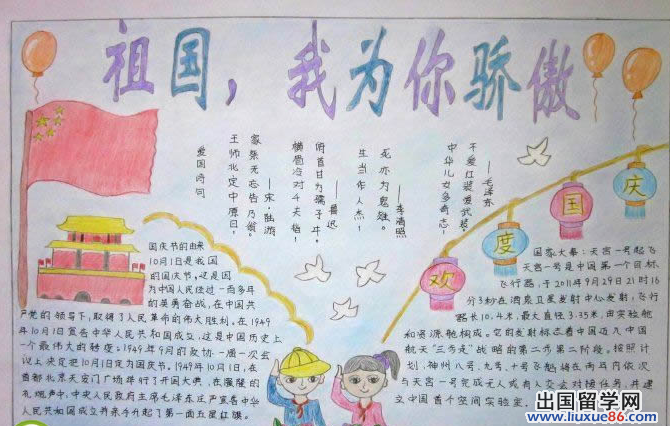 祖国,我为你骄傲
爱国诗词
王师北定中原日,
家祭无忘告乃翁。
——宋·陆游
横眉冷对千夫指,
俯首甘为孺子牛。
——鲁迅
生当作人杰!
死亦为鬼雄。
——李清照
中华儿女多奇志,
不爱红装爱武装。
——毛泽东
欢度国庆
国庆节的由来
10月1日是我国
的国庆节。这是因
为中国人民经过一百多年
的英勇奋战,在中国共
产党的领导下,取得了人民革命的伟大胜利。在1949
年10月1日宣告中华人民共和国成立,这是中国历史上
一个最伟大的转变。1949年9月的政协一届一次会
议上决定把10月1日定为国庆节。1949年10月1日,在
首都北京天安门广场举行了开国大典,在隆隆的
礼炮声中,中央人民政府主席毛泽东庄严宣告中华
人民共和国成立并亲手升起了第一面五星红旗。
国家大事:天宫一号起飞
天宫一号是中国第一个目标
飞行器,于2011年9月29日21时16
分3秒在酒泉卫星发射中心发射,飞行
器长10.4米,最大直径3.35米,由实验舱
和资源舱构成。它的发射标志着中国迈入中国
航天"三步走"战略的第二步第二阶段。按照计
划,神舟八号、九号、十号飞船将在两年内依次
与天宫一号完成无人或有人交会对接任务,并建
立中国首个空间实验室。
出国留学网
www.liuxue86.com